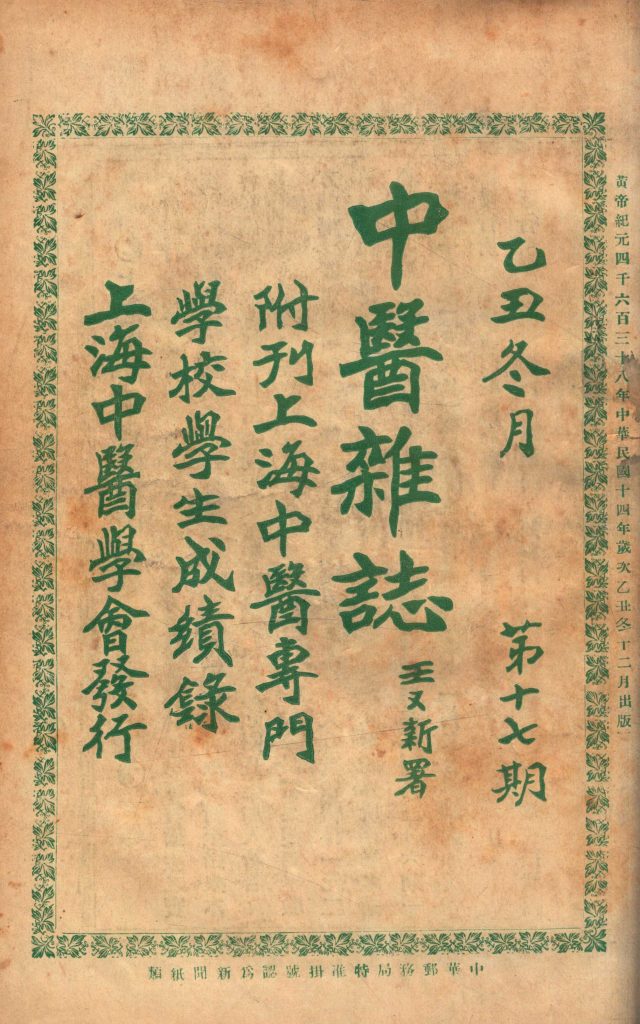 黃帝紀元四千六百三十八年中華民國十四年歲次乙丑冬十二月出版
乙丑冬月 第十七期
中醫雜誌 王又新署
附刊上海中醫專門
學校學生成績錄
上海中醫學會發行
中華郵務局特准掛號認為新聞紙類